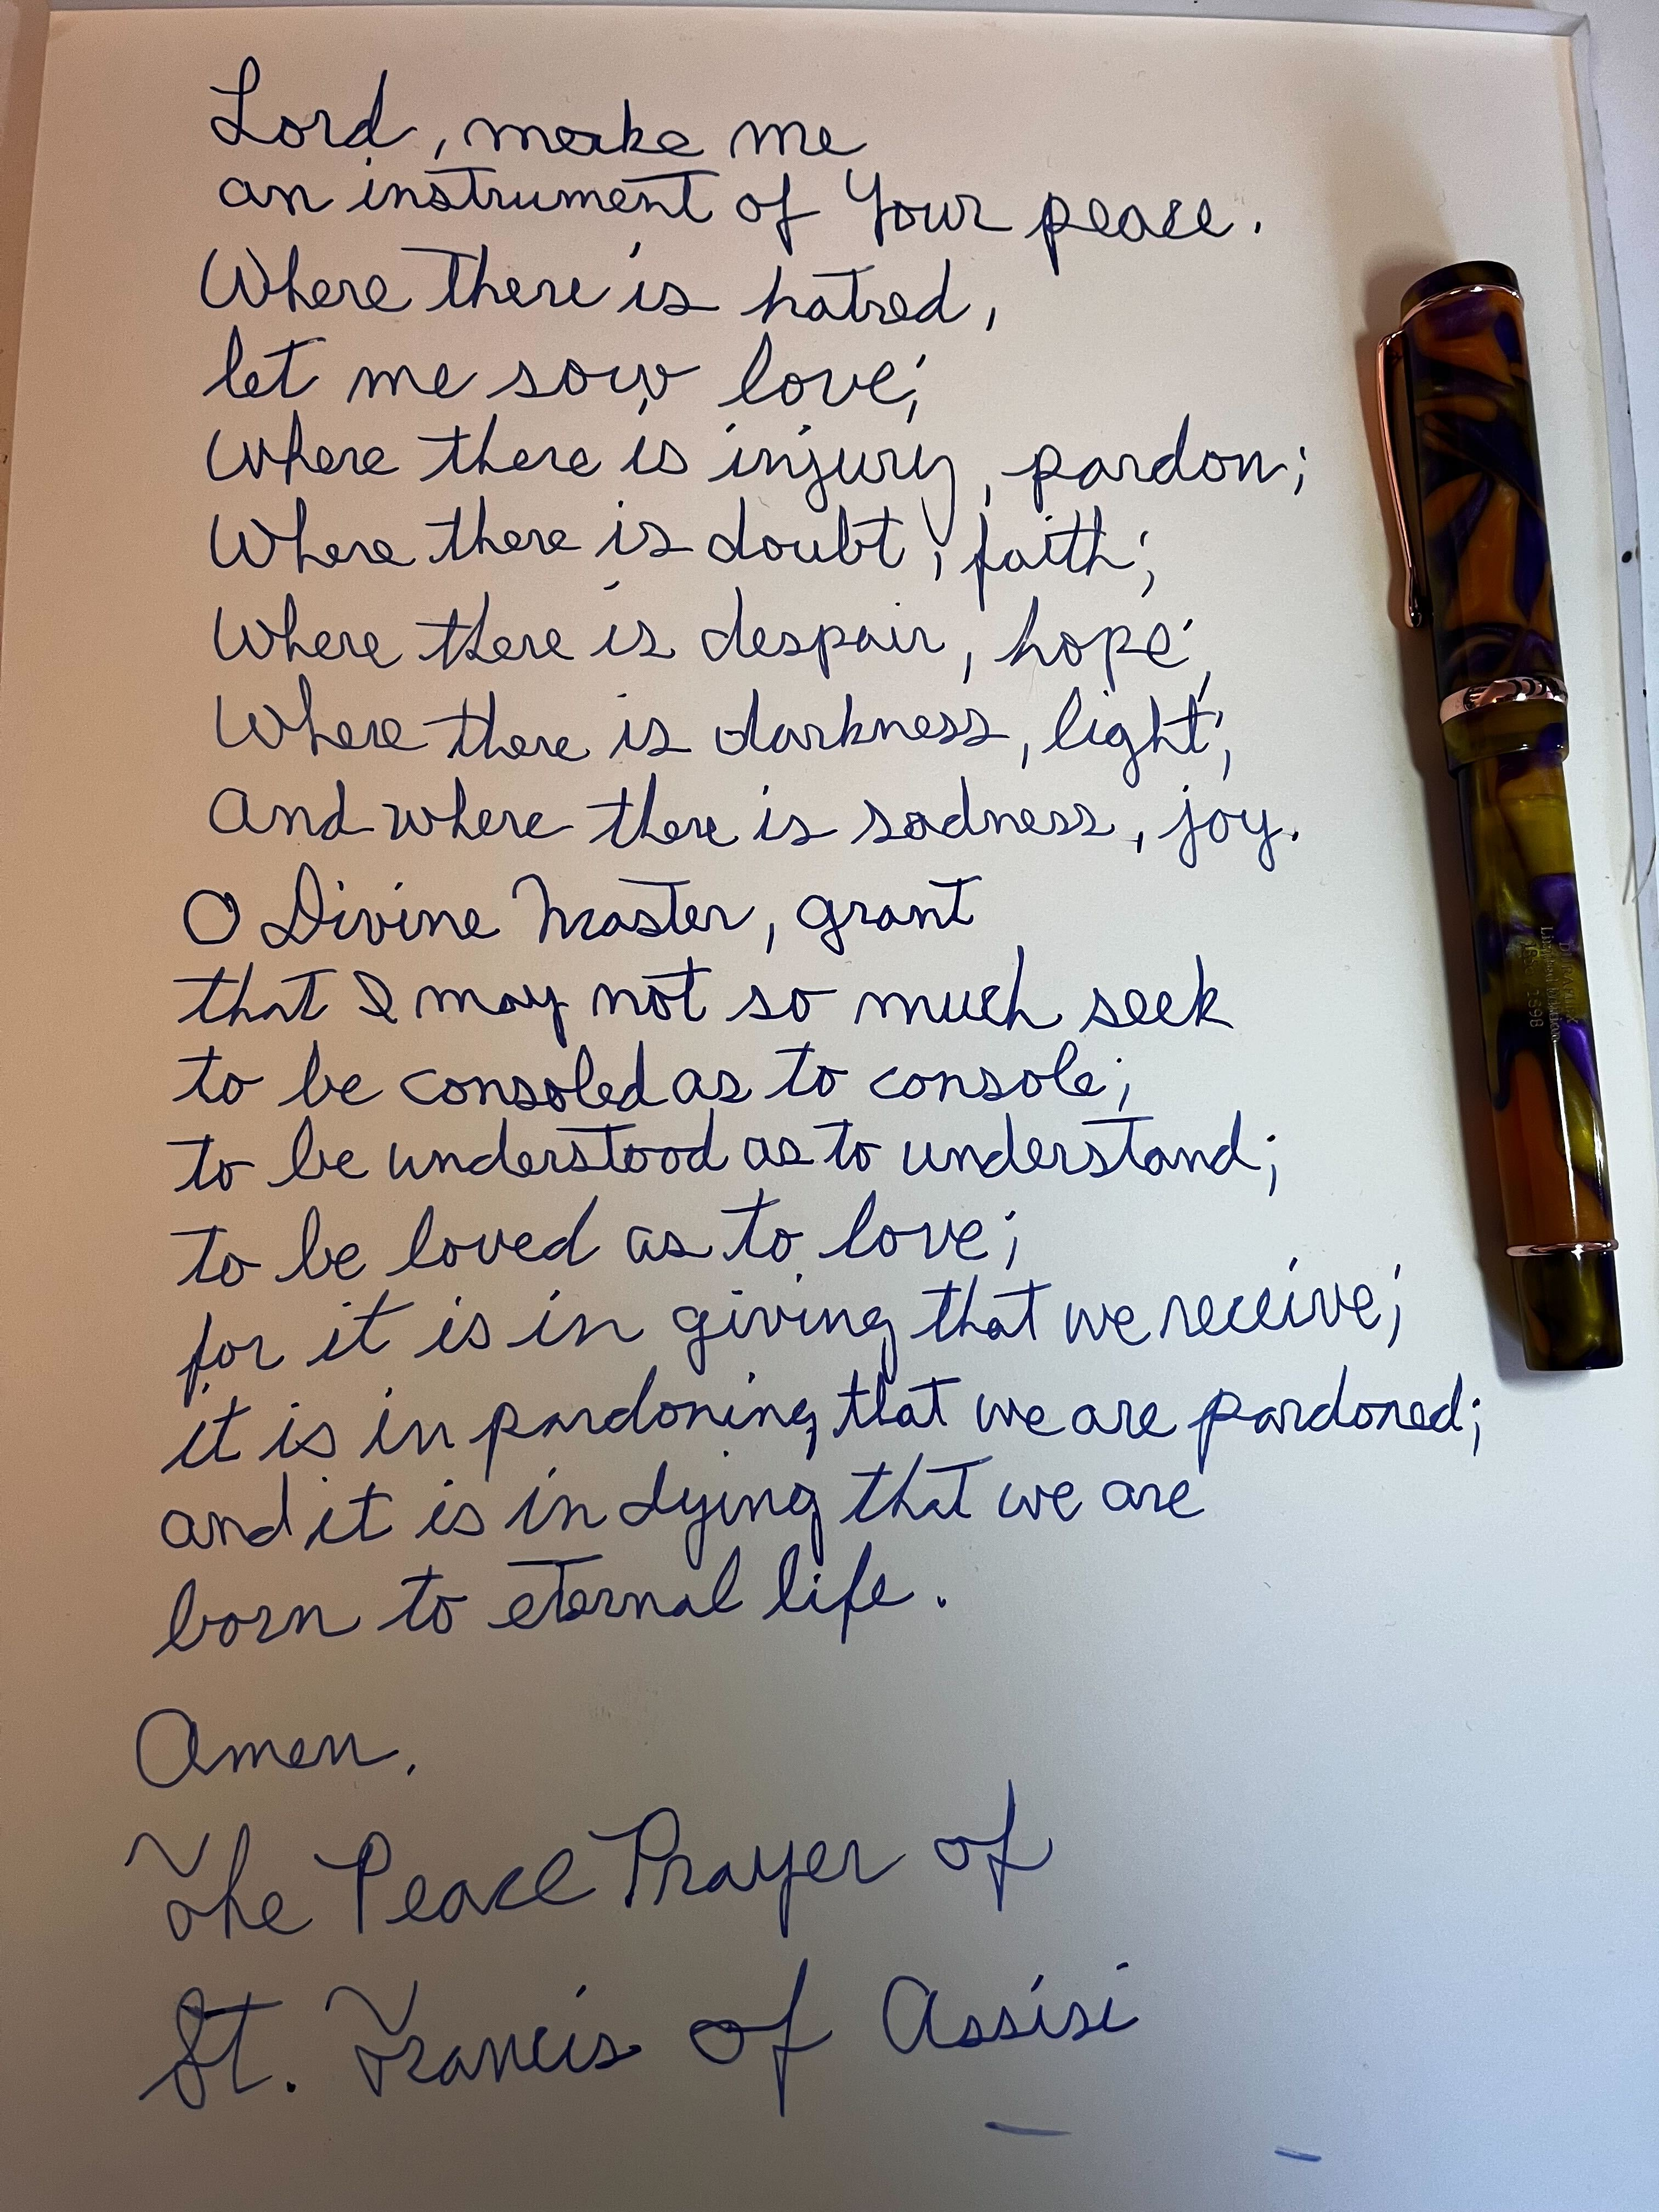 Lord, make me
an instrument of Your peace.
Where there is hatred,
let me sow love;
Where there is injury, pardon;
Where there is doubt, faith;
Where there is despair, hope;
Where there is darkness, light;
And where there is sadness, joy.
O Divine Master, grant
that I may not so much seek
to be consoled as to console;
to be understood as to understand;
to be loved as to love;
for it is in giving that we receive;
it is in pardoning that we are pardoned;
and it is in dying that we are
born to eternal life.
Amen.
The Peace Prayer of
St. Francis of Assisi
1898